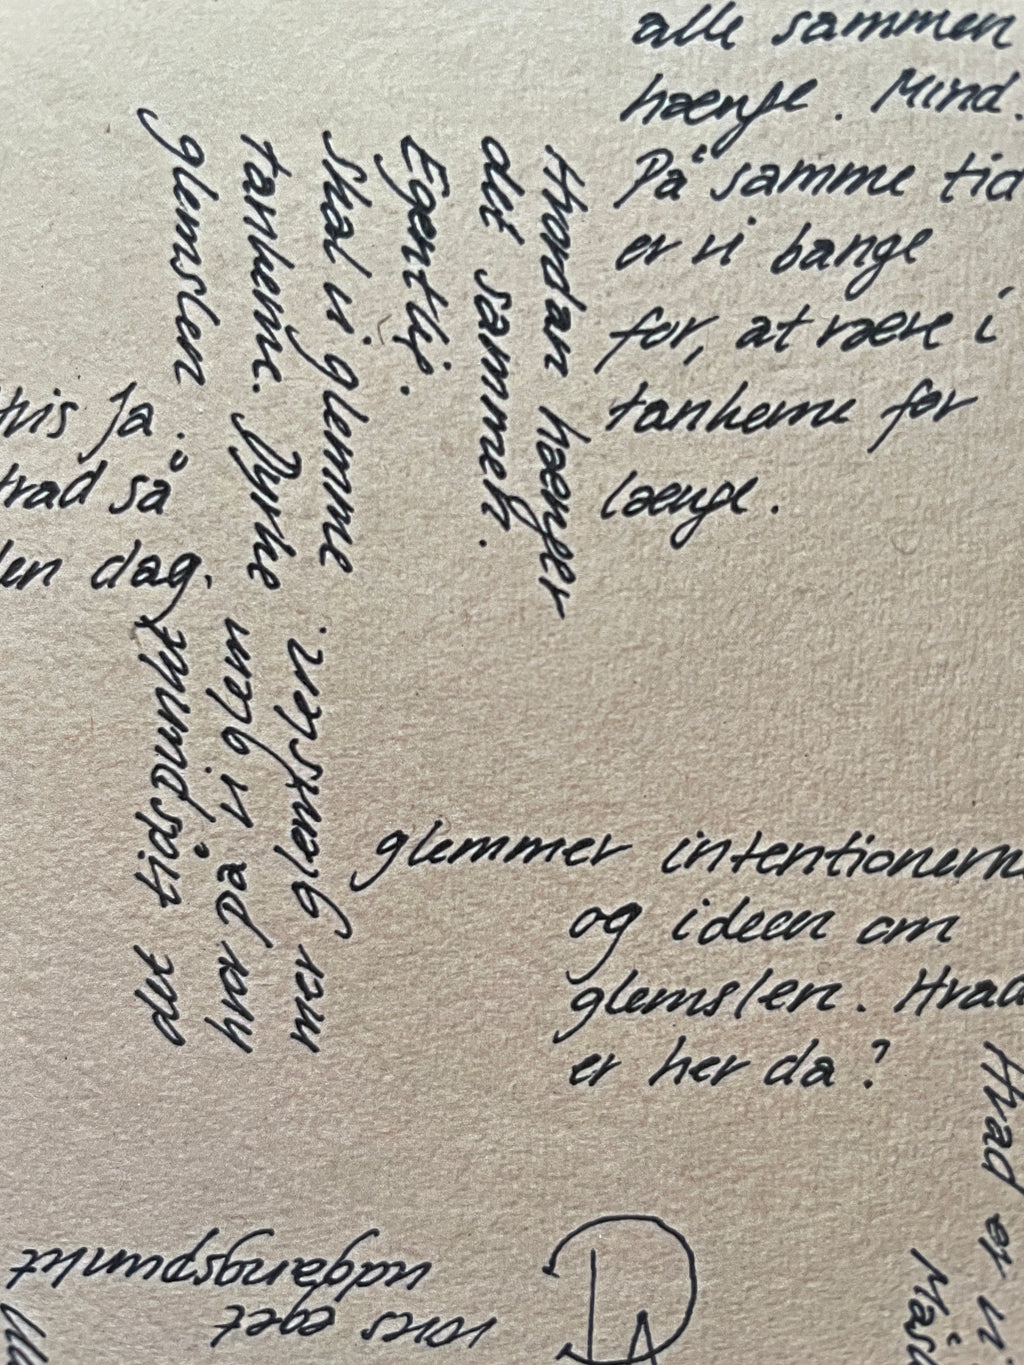 alle sammen
hænge. Mind.
På samme tid
er vi bange
for, at være i
tankerne for
længe.
Hvordan hænger
det sammen.
Egentlig.
Skal vi glemme
tankerne. Dyrke
glemslen
Ja.
så
dag.
mer glemslen
hvor på vi glem
det tidspunkt
glemmer intentionern
og ideen om
glemslen. Hvad
er her da?
Hvad er vi
vores eget
udgangspunkt